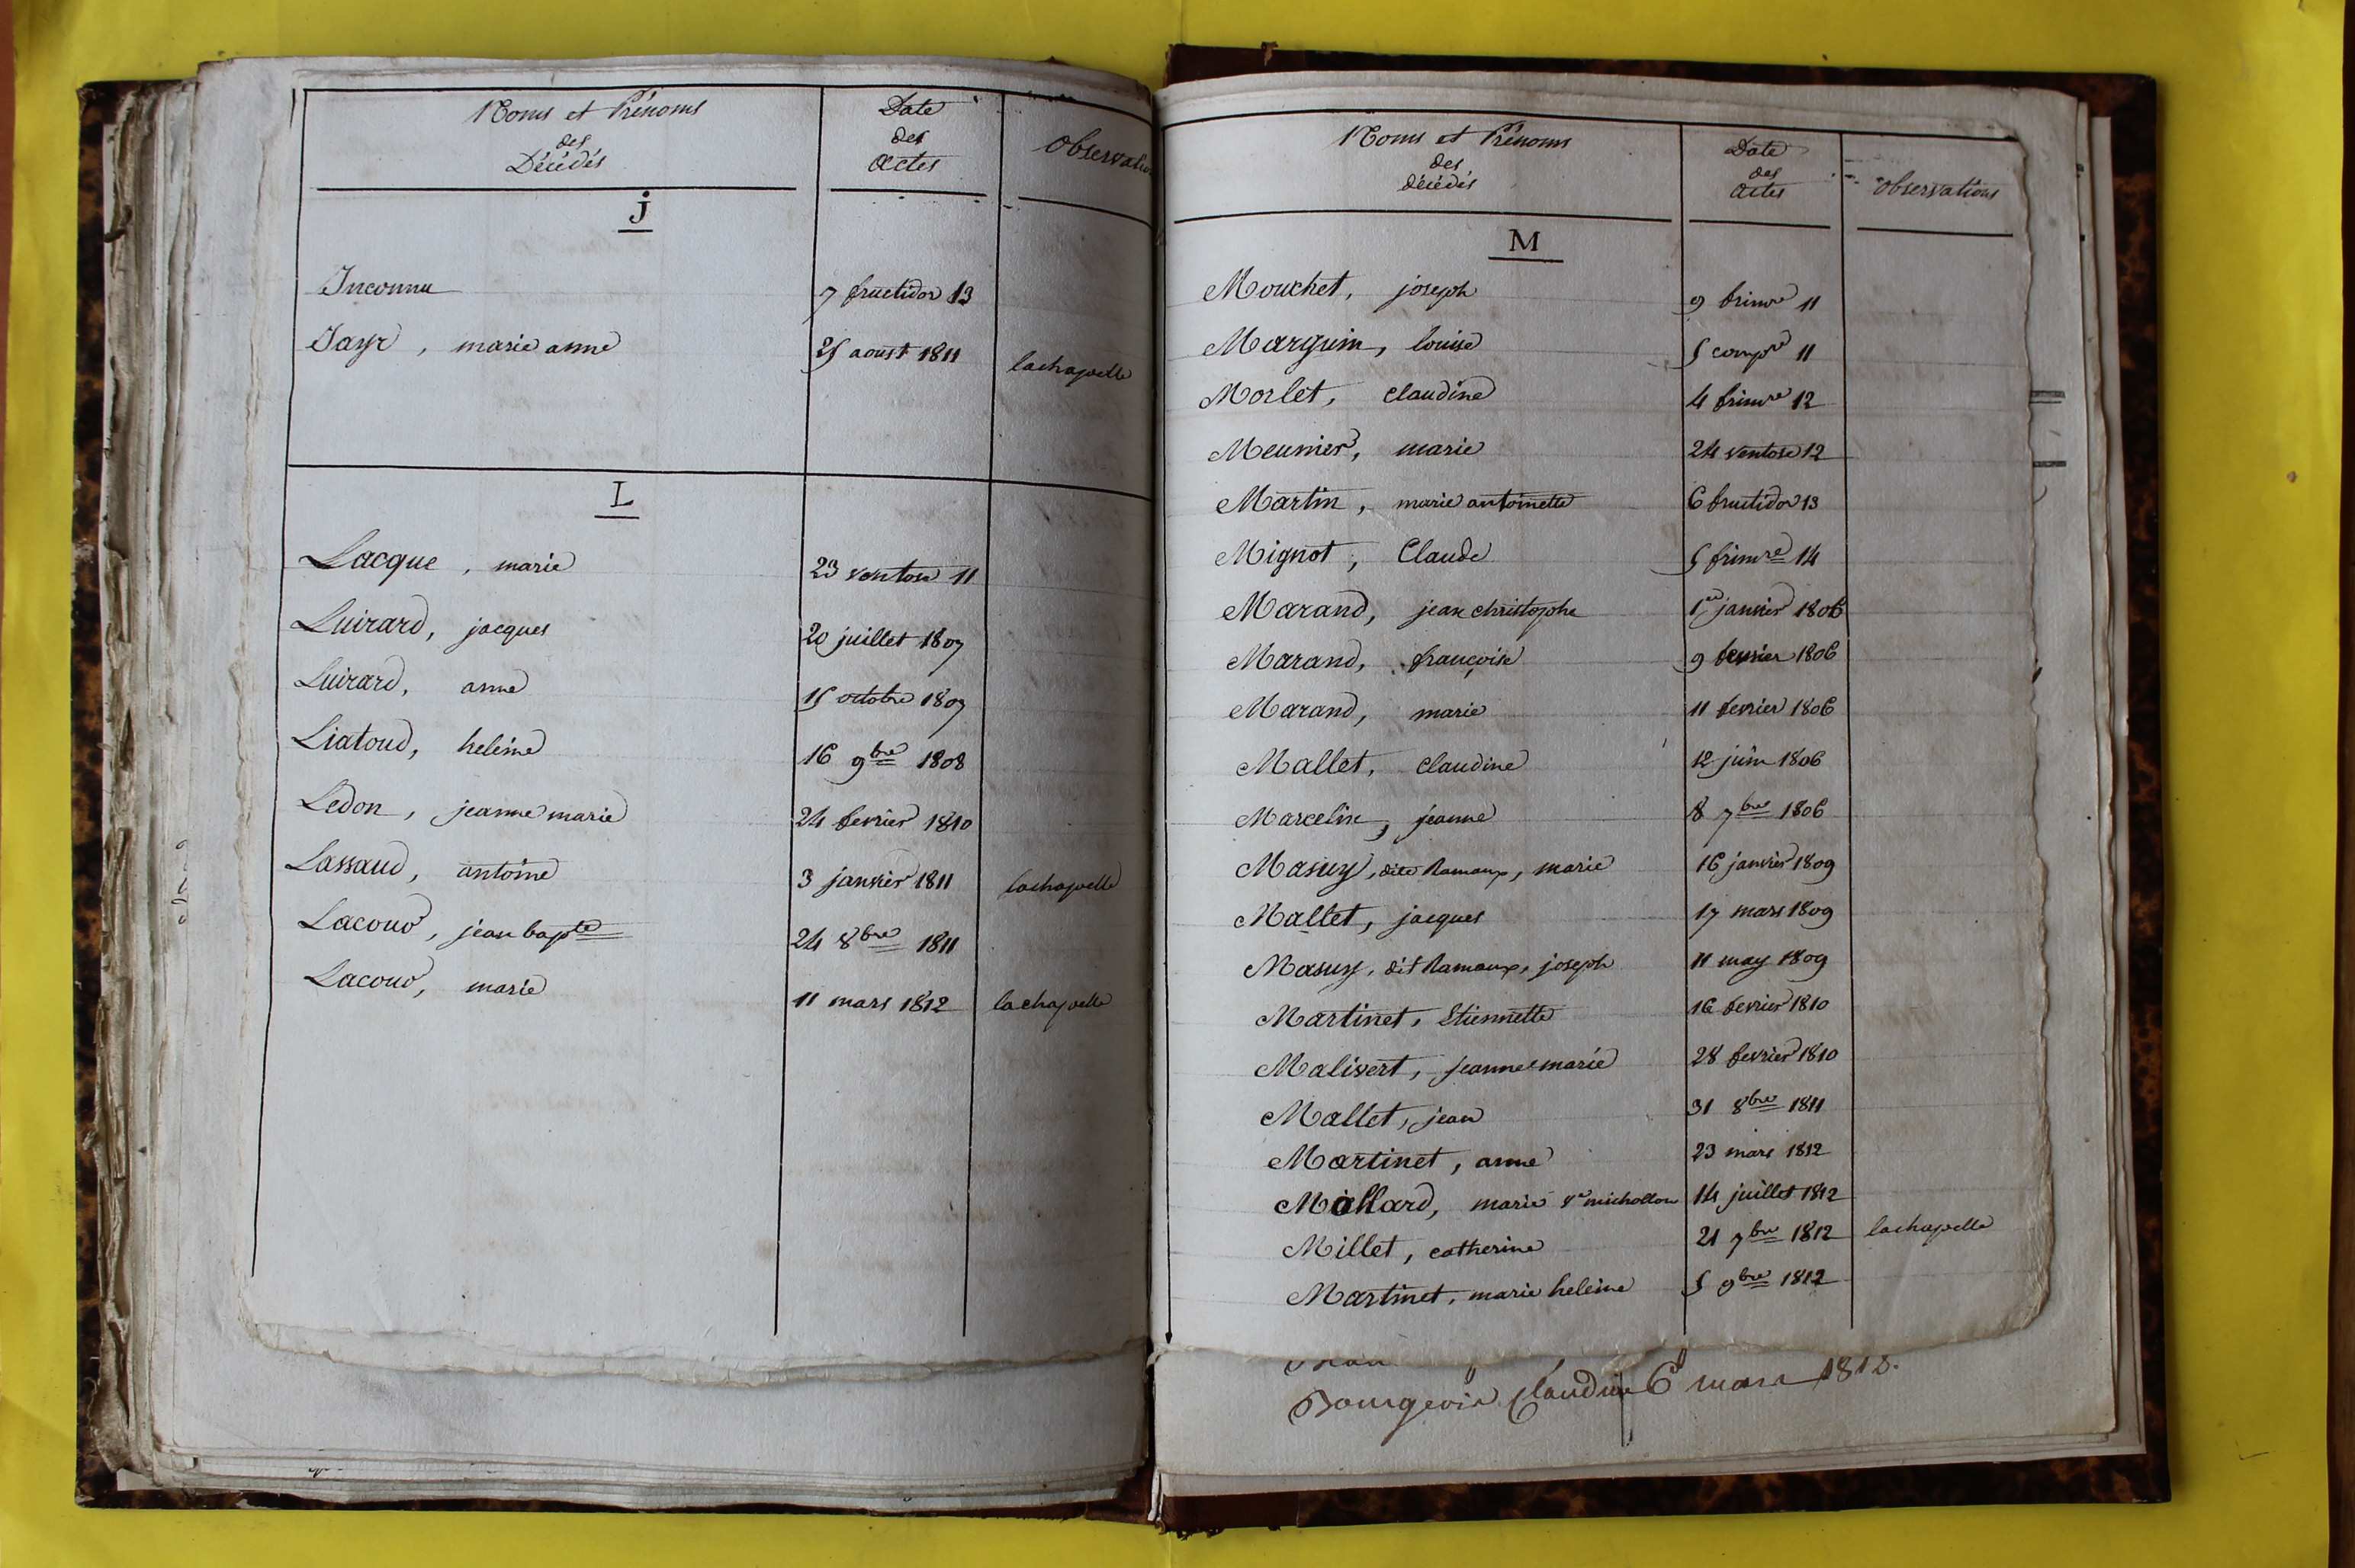 Noms et Prénoms
des
Décédés
Date
des
Actes
Observation
j
Inconnu 7 fructidor 13
Jayr, marie anne 25 aoust 1811 lachapelle
L
Lacque, marie 23 ventose 11
Luirard, jacques 20 juillet 1807
Luirard, anne 15 octobre 1807
Liatoud, heleine 16 9bre 1808
Ledon, jeanne marie 24 fevrier 1810
Lassaud, antoine 3 janvier 1811 lachapelle
Lacour, jean bapte 24 8bre 1811
Lacour, marie 11 mars 1812 lachapelle
Noms et Prénoms
des
décédés
Date
des
Actes
Observations
M
Mouchet, joseph 9 frimre 11
Marguin, louise 5 compre 11
Morlet, claudine 4 frimre 12
Meunier, marie 24 ventose 12
Martin, marie antoinette 6 fructidor 13
Mignot, Claude 5 frimre 14
Marand, jean christophe 1er janvier 1806
Marand, françoise 9 fevrier 1806
Marand, marie 11 fevrier 1806
Mallet, claudine 12 juin 1806
Marcelin, jeanne 8 7bre 1806
Masuy, dite Ramaux, marie 16 janvier 1809
Mallet, jacques 17 mars 1809
Masuy, dit Ramaux, joseph 11 may 1809
Martinet, Etiennette 16 fevrier 1810
Malivert, jeanne marie 28 fevrier 1810
Mallet, jean 31 8bre 1811
Martinet, anne 23 mars 1812
Mollard, marie ve michollon 14 juillet 1812
Millet, catherine 21 7bre 1812 lachapelle
Martinet, marie heleine 5 9bre 1812
Bourgeois Claudine 6 mars 1812.